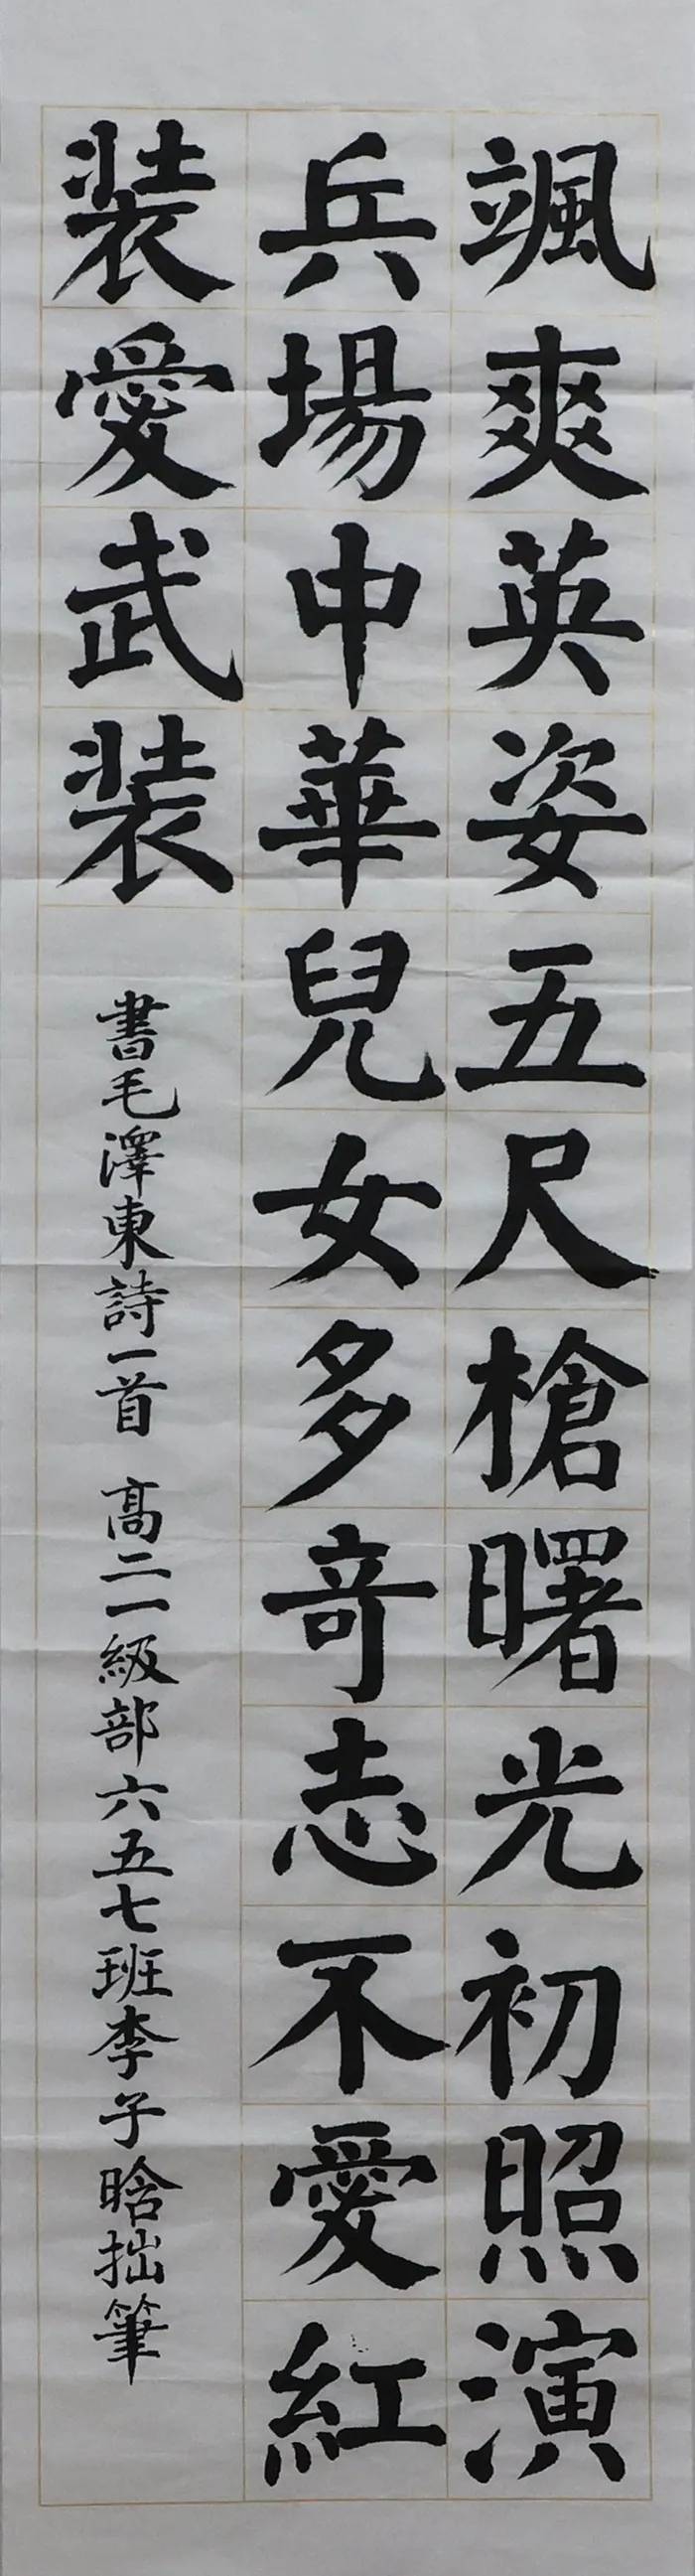 颯爽英姿五尺槍曙光初照演
兵場中華兒女多奇志不愛紅
装愛武装
書毛澤東詩一首 高二一級部六五七班李子晗拙筆